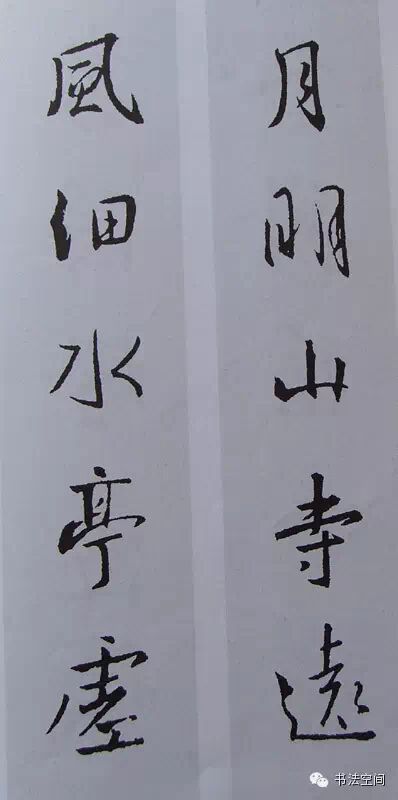 月明山寺遠
風細水亭虛
书法空间